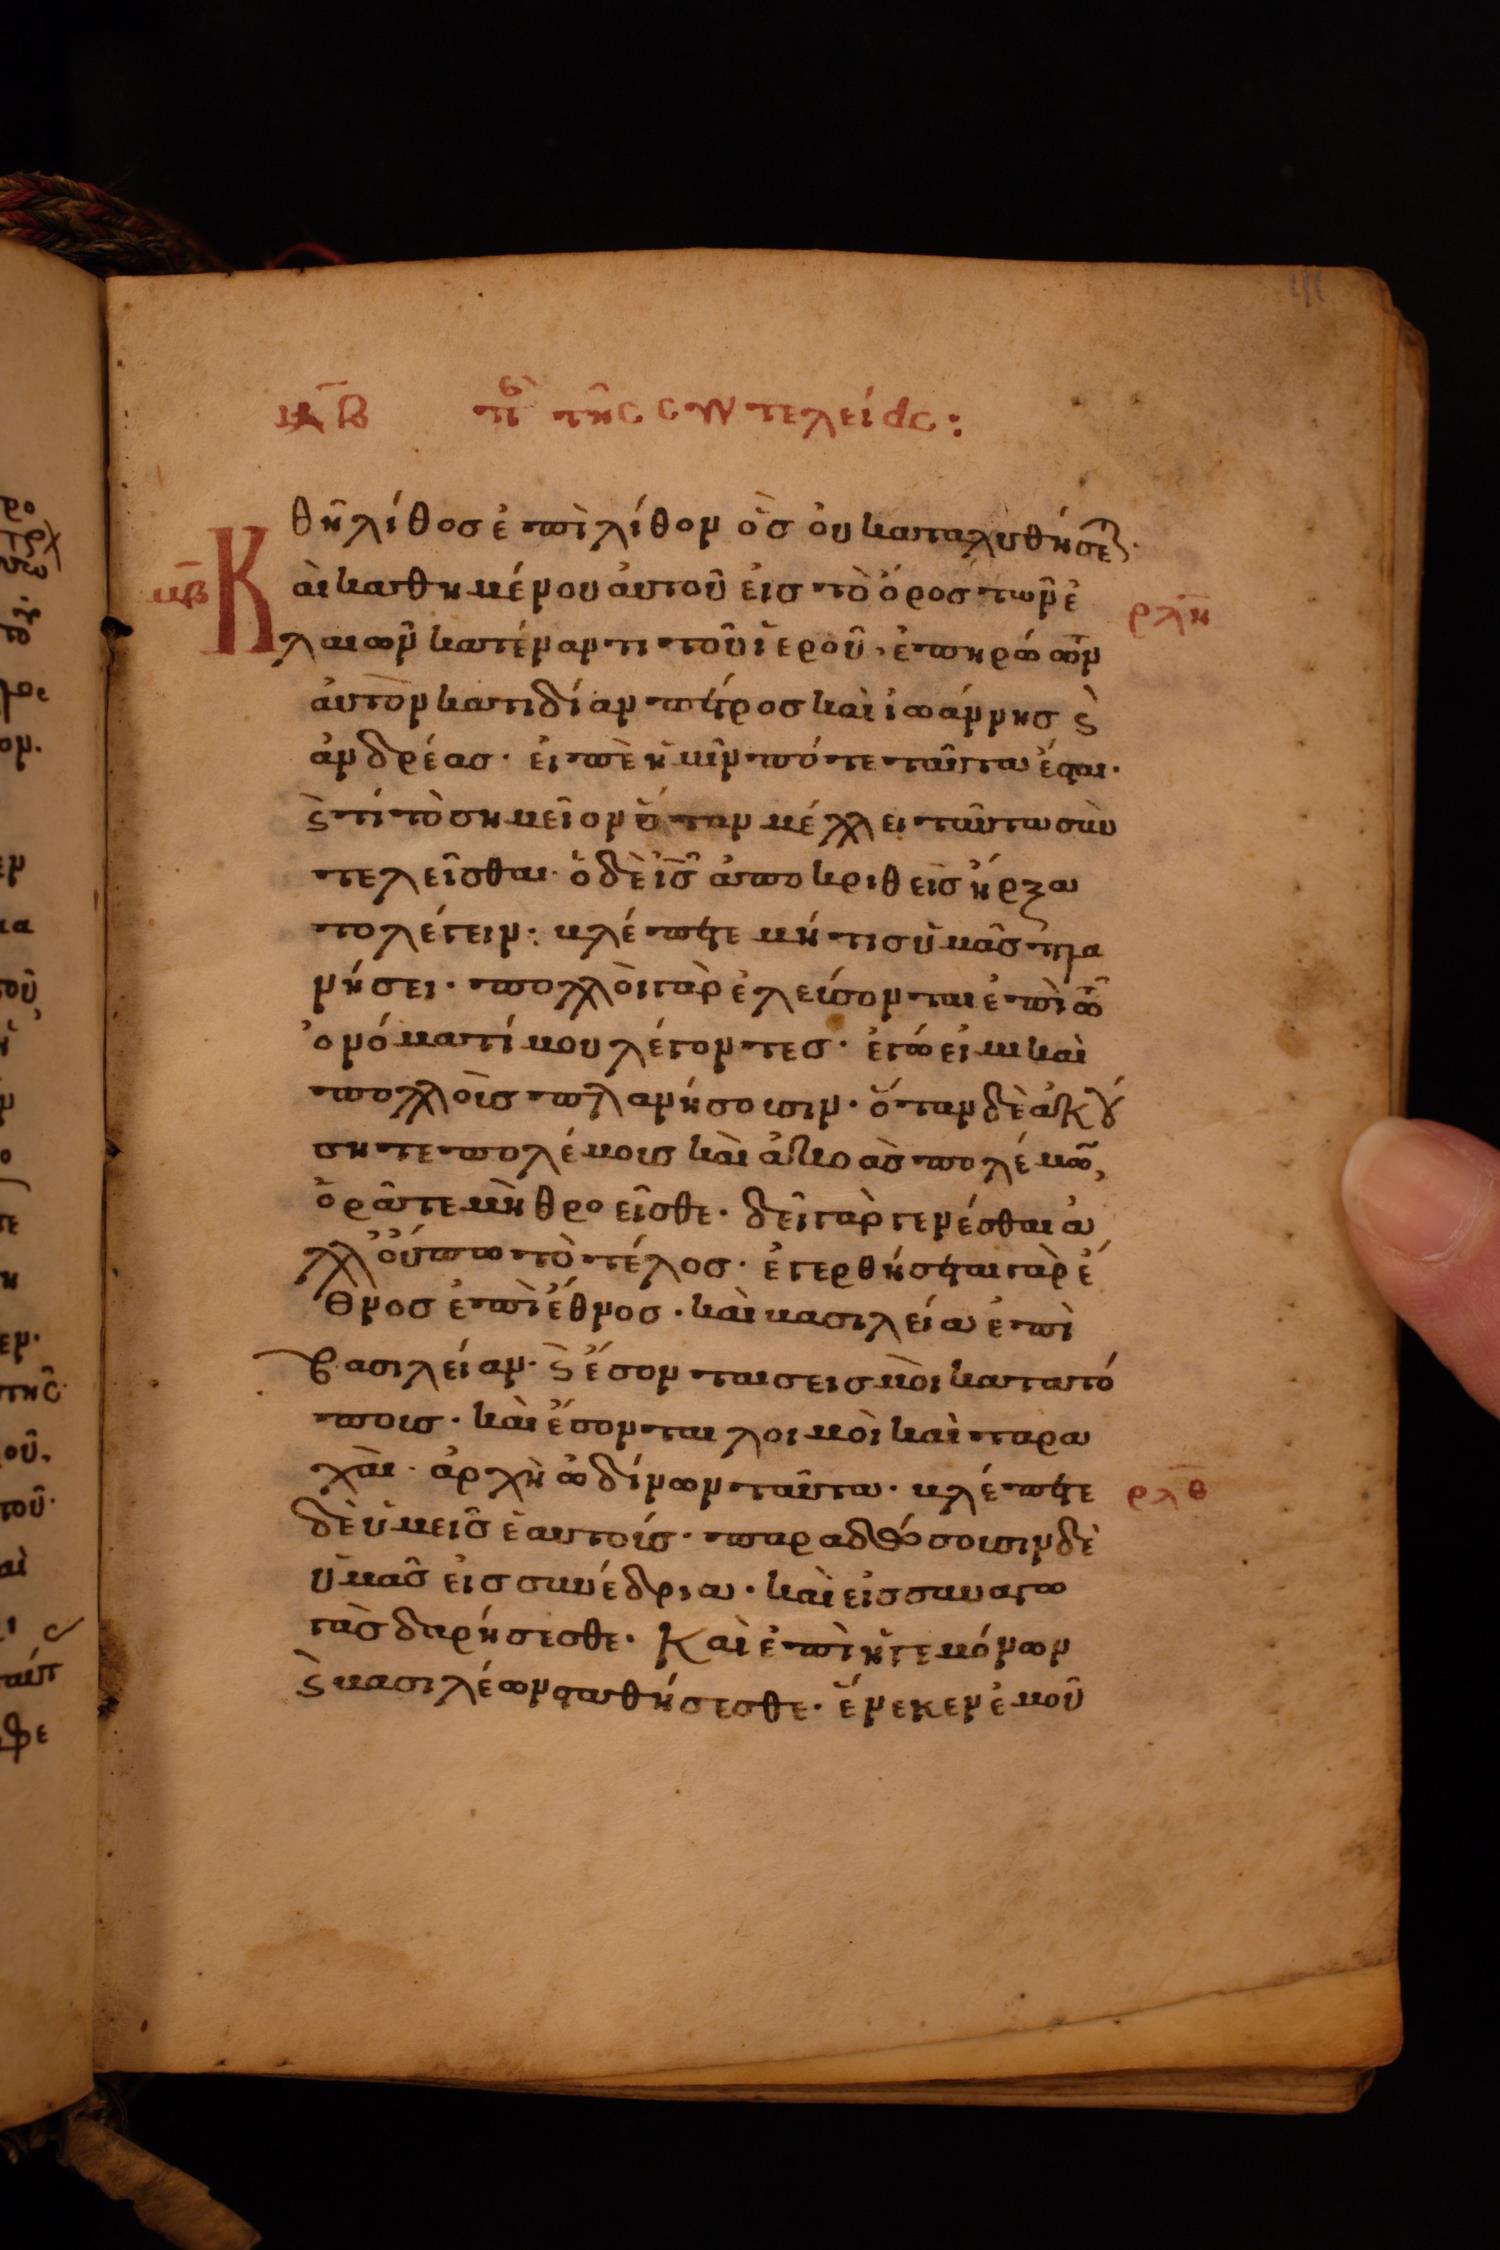 μβ πε τῆς συντελείας:
θῆ λίθος ἐπὶ λίθον ὃς οὐ καταλυθήσε·
μβ Καὶ καθημένου αὐτοῦ εἰς τὸ ὄρος τῶν ἐ
λαιῶν κατέναντι τοῦ ἱεροῦ· ἐπηρώων ρλη
αὐτὸν κατιδίαν πέτρος καὶ ἰωάννης ϛ
ἀνδρέας· εἰπὲ ἡμῖν πότε ταῦτα ἔσται·
ϛ τί τὸ σημεῖον ὅταν μέλλει ταῦτα συν
τελεῖσθαι· ὁ δὲ ις ἀποκριθεὶς ἤρξα
το λέγειν· βλέπετε μή τις ὑμᾶς πλα
νήσει· πολλοὶ γὰρ ἐλεύσονται ἐπὶ τῶ
ὀνόματί μου λέγοντες· ἐγώ εἰμι καὶ
πολλοὺς πλανήσουσιν· ὅταν δὲ ἀκού
σητε πολέμους καὶ ἀκοὰς πολέμων,
ὁρᾶτε μὴ θροεῖσθε· δεῖ γὰρ γενέσθαι ἀ
λλ οὔπω τὸ τέλος· ἐγερθήσεται γὰρ ἔ
θνος ἐπὶ ἔθνος· καὶ βασιλεία ἐπὶ
βασιλείαν· ϛ ἔσονται σεισμοὶ κατατό
πους· καὶ ἔσονται λοιμοὶ καὶ ταρα
χαὶ· ἀρχὴ ὠδίνων ταῦτα· βλέπετε ρλθ
δὲ ὑμεῖς ἑαυτούς· παραδώσουσιν δὲ
ὑμᾶς εἰς συνέδρια· καὶ εἰς συναγω
γὰς δαρήσεσθε· Καὶ ἐπὶ ἡγεμόνων
ϛ βασιλέων σταθήσεσθε· ἕνεκεν ἐμοῦ